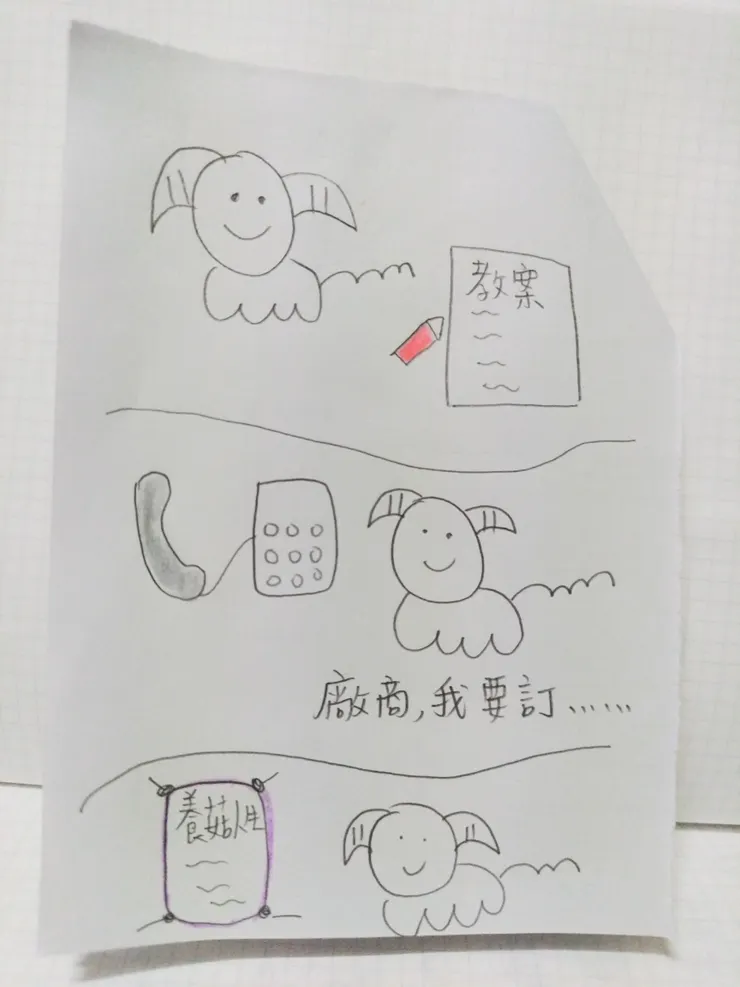 教案
廠商,我要訂……
養菇人生